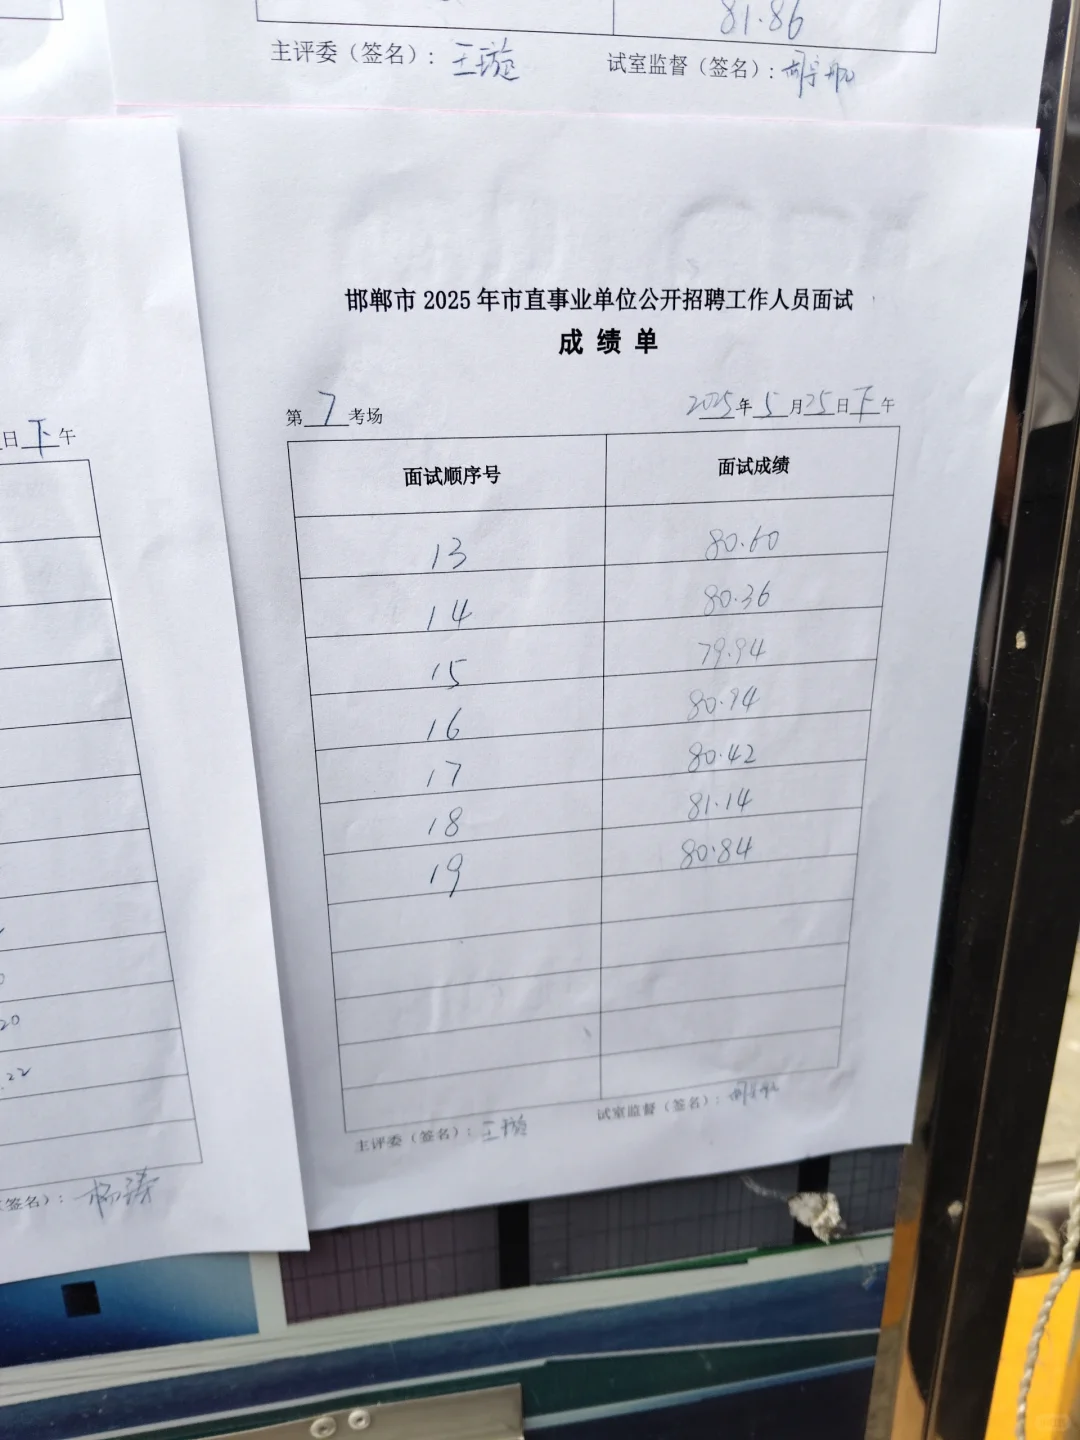 81.86
主评委（签名）：王璇 试室监督（签名）：
邯郸市 2025 年市直事业单位公开招聘工作人员面试
成 绩 单
日下午
第 7 考场 2025年 5 月 25 日 下 午
面试顺序号 面试成绩
13 80.60
14 80.36
15 79.94
16 80.94
17 80.42
18 81.14
19 80.84
20
.22
主评委（签名）：王璇 试室监督（签名）：
签名）：杨涛